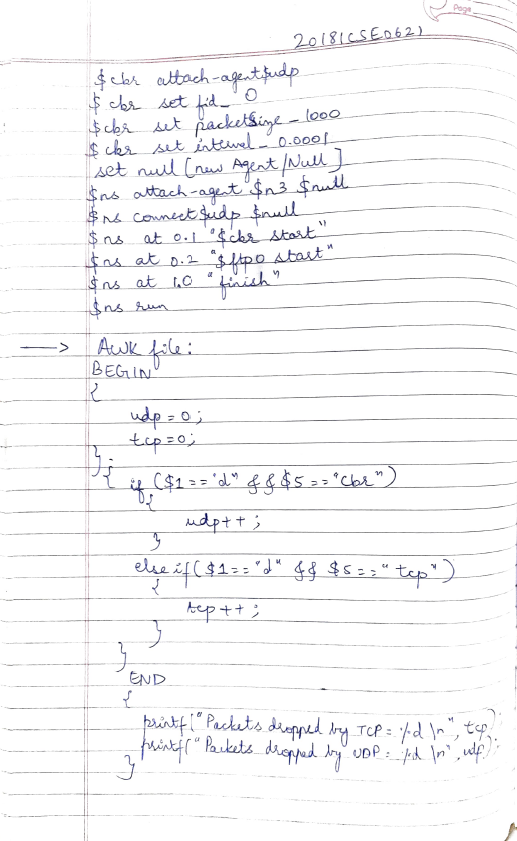 Page
20181CSE0621
$cbr attach-agent $udp
$ cbr set fid_ 0
$cbr set packetsize_1000
$ cbr set interval_ 0.0001
set null [new Agent/Null]
$ns attach-agent $n3 $null
$ns connect $udp $null
$ns at 0.1 "$cbr start"
$ns at 0.2 "$ftp0 start"
$ns at 1.0 "finish"
$ns run
—> AWK file:
BEGIN
{
udp = 0;
tcp=0;
}
{ if ($1=="d" && $5=="cbr")
{
udp++;
}
else if($1=="d" && $5=="tcp")
{
tcp++;
}
}
END
{
printf("Packets dropped by TCP = %d \n", tcp);
printf("Packets dropped by UDP = %d \n", udp);
}